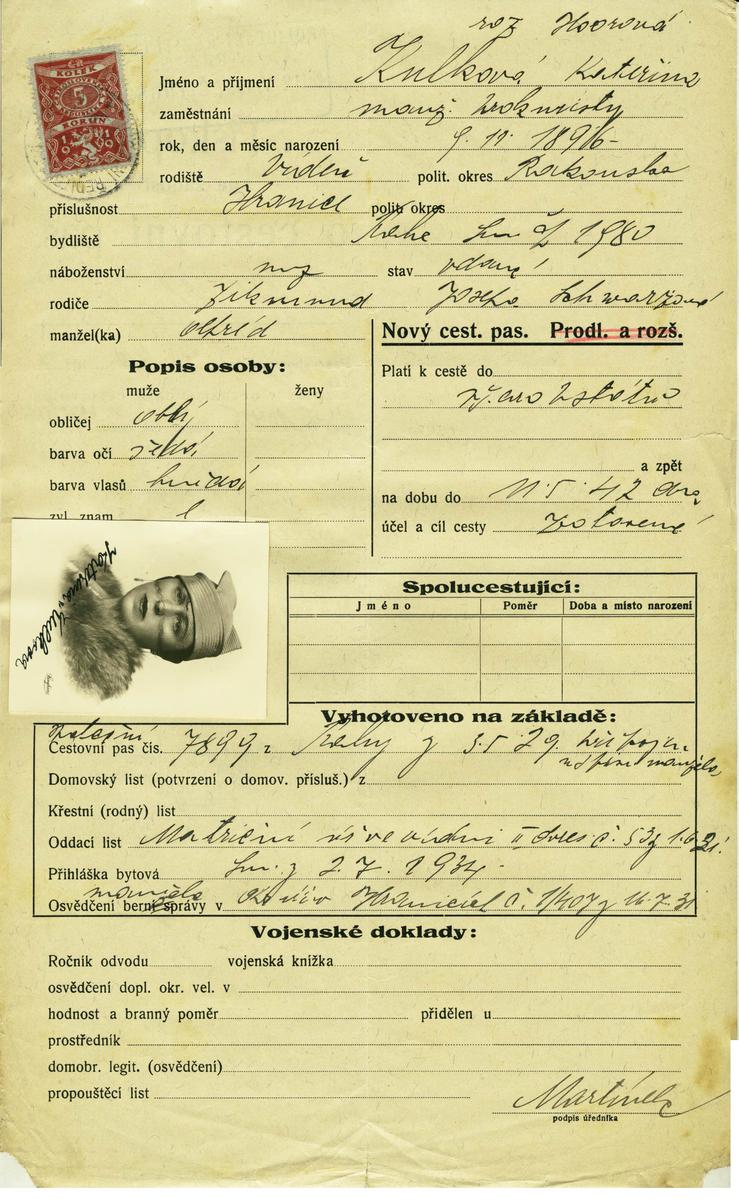 roz Hoorová
KOLEK
5
KORUN
Jméno a příjmení Kulková Kateřina
zaměstnání manž.
rok, den a měsíc narození 9. 11. 1896
rodiště Vídeň polit. okres Rakousko
příslušnost Hranice polit. okres
bydliště čp 1980
náboženství moj stav vdaná
rodiče Zikmund Schwarzová
manžel(ka) Alfréd
Nový cest. pas. Prodl. a rozš.
Popis osoby:
muže ženy
Platí k cestě do
obličej oblý
barva očí šedá
a zpět
barva vlasů hnědá
na dobu do 11. 5. 42
zvl. znam.
účel a cíl cesty
Kulkova
Spolucestující:
Jméno Poměr Doba a místo narození
Vyhotoveno na základě:
Cestovní pas čís. 7899 z 3. 5. 29.
manžela
Domovský list (potvrzení o domov. přísluš.) z
Křestní (rodný) list
Oddací list Matriční ve Vídni II č. 53 z 1. 6. 21.
Přihláška bytová z 2. 7. 1934
manžela
Osvědčení berní správy v Hranicích č. 1/407 z 16. 7. 31
Vojenské doklady:
Ročník odvodu vojenská knížka
osvědčení dopl. okr. vel. v
hodnost a branný poměr přidělen u
prostředník
domobr. legit. (osvědčení)
propouštěcí list
Martínek
podpis úředníka